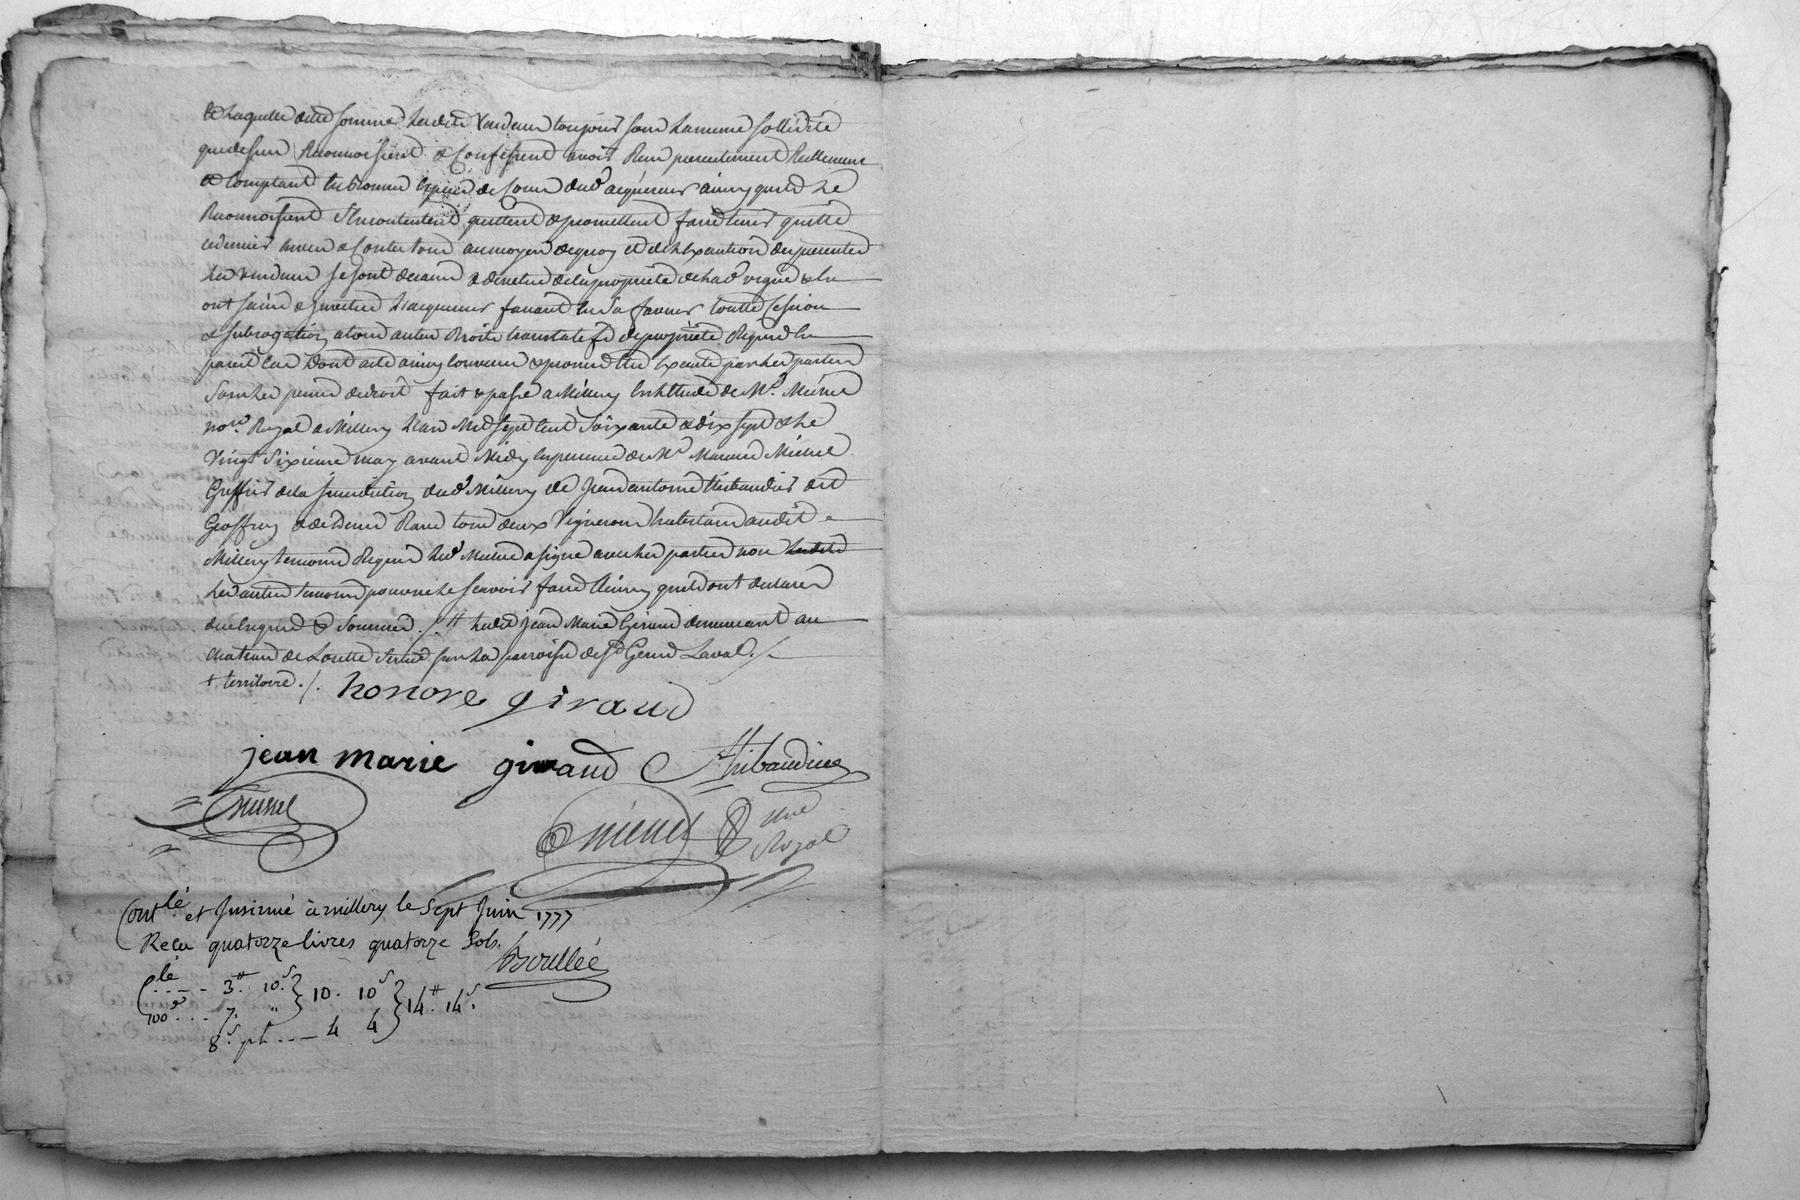 de laquelle ditte somme lesdits vendeurs toujours sous la meme sollidité
que dessus Reconnoissent & Confessent avoir Reçu presentement Reellement
& Comptant en bonnes Especes de Cours dud acquereur ainsy quils le
Reconnoissent s'en contentent quittent & promettent faire tenir quitte
envers & Contre tous au moyen dequoy et de l'Exaution des presentes
les vendeurs se sont demis & devetus de la proprieté de lad vigne & en
ont saisi & investu l'acquereur faisant en sa faveur toutte Cession
& subrogation a tous autres Droits translatifs de proprieté Requis en
pareil Cas Dont acte ainsy Convenu & promis Etre Exauté par les parties
Sous les peines de droit fait & passé a Millery En L'Etude de Me Michel
nore Royal a Millery L'an Mil sept Cent Soixante & dix sept & le
Vingt Sixieme may avant Midy En presence de Mr Michel
Greffier de la Jurisdiction dud Millery de Jean antoine Thibaudier dit
Geoffray & de Rave tous deux Vignerons habitans audit
Millery temoins Requis led Michel a signé avec les parties non
les autres temoins pour ne le scavoir faire Ainsy quils ont declaré
de ce Enquis & Sommés ./. # ledit Jean Marie Giraud demeurant au
chateau de Loulle située sur la parroisse de St Genis Laval ./.
+ territoire ./. honore giraud
jean marie giraud Thibaudier
Michel Michel nre Royal
Contlé et Insinué à millery le Sept Juin 1777
Reçu quatorze livres quatorze Sols.
Boullée
Clé .... 3.# 10.s } 10. 10s } 14.# 14.s
100e ... 7. "
8.s pl ---- 4 4